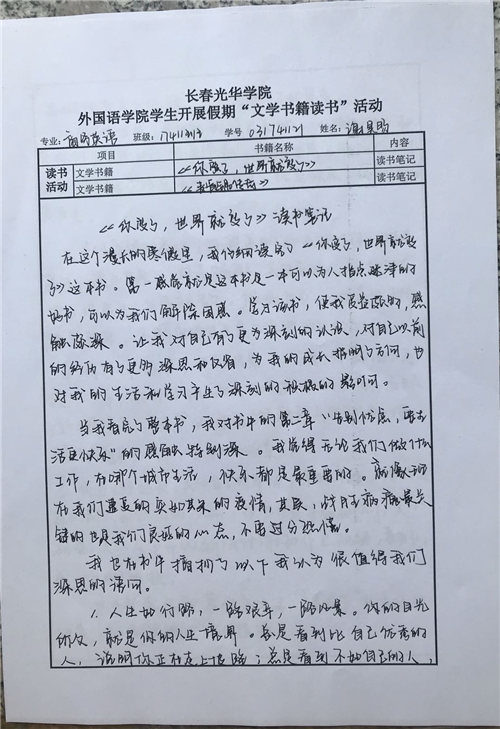 长春光华学院
外国语学院学生开展假期“文学书籍读书”活动
专业：商务英语 班级：1741313 学号 031741121 姓名：谢昊明
项目 书籍名称 内容
读书活动 文学书籍 《你变了，世界就变了》 读书笔记
文学书籍 读书笔记
《你变了，世界就变了》读书笔记
在这个漫长的寒假里，我仔细读完了《你变了，世界就变
了》这本书。第一感觉就是这本书是一本可以为人指点迷津的
好书，可以为我们解除困惑。学习该书，使我受益颇多，感
触颇深。让我对自己有了更为深刻的认识，对自己以前
的经历有了更多深思和反省，为我的成长指明了方向，也
对我的生活和学习产生了深刻的积极的影响。
当我看完了整本书，我对书中的第二章“告别忧虑，要去
活更快及”的感触特别深。我觉得无论我们做什么
工作，在哪个城市生活，快乐都是最重要的。就像现
在我们遭受的突如其来的疫情，其实，战胜病痛最关
键的也是我们良好的心态，不要过分恐慌。
我也在书中摘抄了以下我认为很值得我们
深思的语句。
1.人生如行路，一路艰辛，一路风景。你的目光
所及，就是你的人生境界。总是看到比自己优秀的
人，说明你正在走上坡路；总是看到不如自己的人，